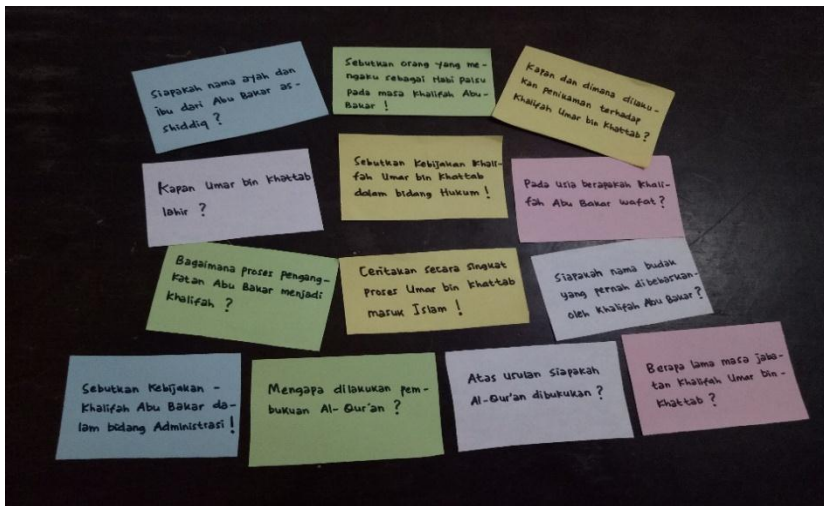 Siapakah nama ayah dan
ibu dari Abu Bakar as-
shiddiq ?
Sebutkan orang yang me-
ngaku sebagai Nabi palsu
pada masa Khalifah Abu-
Bakar !
Kapan dan dimana dilaku-
kan penikaman terhadap
Khalifah Umar bin Khattab ?
Kapan Umar bin Khattab
lahir ?
Sebutkan Kebijakan Khali-
fah Umar bin Khattab
dalam bidang Hukum !
Pada usia berapakah Khali-
fah Abu Bakar wafat ?
Bagaimana proses pengang-
katan Abu Bakar menjadi
Khalifah ?
Ceritakan secara singkat
proses Umar bin Khattab
masuk Islam !
Siapakah nama budak
yang pernah dibebaskan-
oleh Khalifah Abu Bakar ?
Sebutkan Kebijakan -
Khalifah Abu Bakar da-
lam bidang Administrasi !
Mengapa dilakukan pem-
bukuan Al-Qur'an ?
Atas usulan siapakah
Al-Qur'an dibukukan ?
Berapa lama masa jaba-
tan Khalifah Umar bin-
Khattab ?